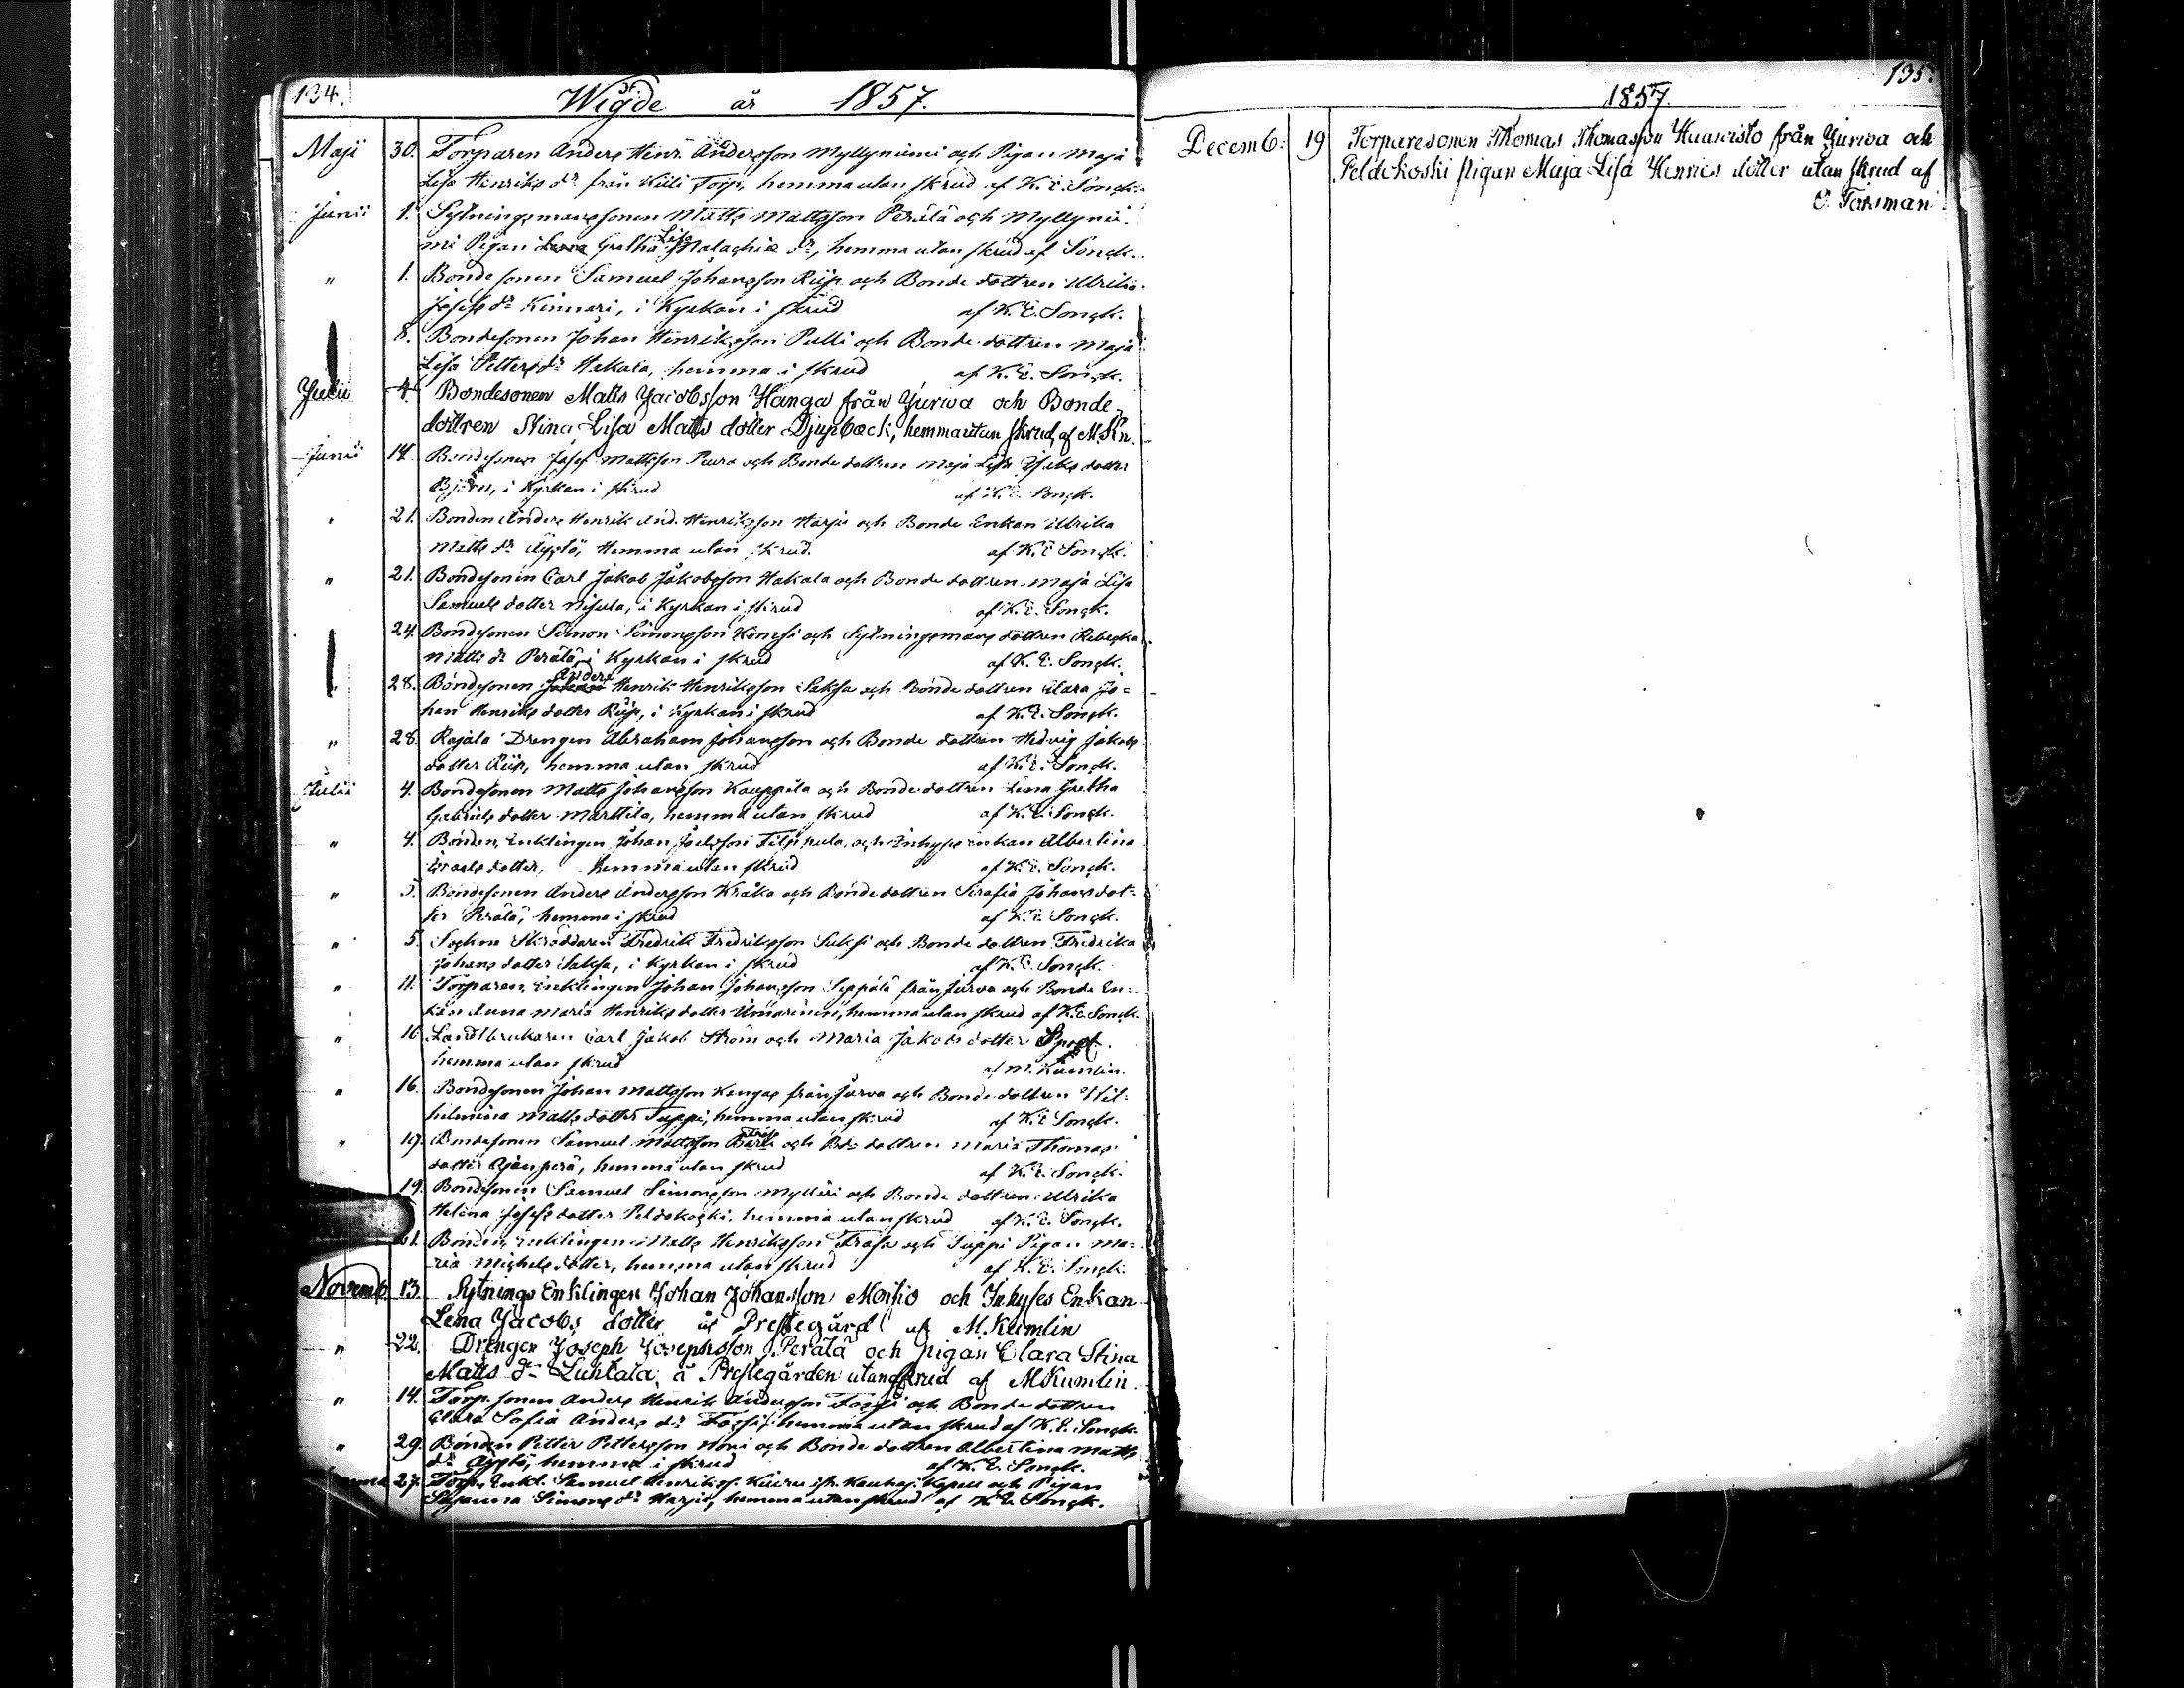 134.
Wigde år 1857.
Maji 30. Torparen Anders Henr. Andersson Myllyniemi och Pigan Maja
Lisa Henriks dr från Kiili Torp, hemma utan skrud af K. E. Songk.
Junii 1. Sytningsmanssonen Matts Mattsson Perälä och Myllynie-
mi Pigan Lena Gretha Lisa Malachiæ dr, hemma utan skrud af Songk.
" 1. Bondesonen Samuel Johansson Riip och Bonde dottren Ulrika
Josefs dr Kinnari, i Kyrkan i skrud af K. E. Songk.
8. Bondesonen Johan Henriksson Pulli och Bonde dottren Maja
Lisa Petters dr Hakala, hemma i skrud af K. E. Songk.
Julii 4. Bondesonen Matts Jacobsson Hanga från Jurwa och Bonde-
dottren Stina Lisa Matts dotter Djupback, hemma utan skrud, af M. Kn.
Junii 14. Bondesonen Josef Mattsson Peura och Bonde dottren Maja Lisa dotter
Björn, i Kyrkan i skrud af K. E. Songk.
21. Bonden Anders Henrik And. Henriksson Harju och Bonde Enkan Ulrika
Matts dr Äystö, Hemma utan skrud. af K. E. Songk.
" 21. Bondesonen Carl Jakob Jakobsson Hakala och Bonde dottren Maja Lisa
Samuels dotter Nisula, i Kyrkan i skrud af K. E. Songk.
24. Bondesonen Simon Simonsson Könsi och Sytningsmans dottren Rebecka
Matts dr Perälä, i Kyrkan i skrud af K. E. Songk.
28. Bondesonen Anders Henrik Henriksson Saksa och Bonde dottren Clara Jo-
han Henriks dotter Riip, i Kyrkan i skrud af K. E. Songk.
" 28. Rajala Drengen Abraham Johansson och Bonde dottren Hedvig Jakobs
dotter Riip, hemma utan skrud af K. E. Songk.
Julii 4. Bondesonen Matts Johansson Kauppila och Bonde dottren Lena Gretha
Gabriels dotter Marttila, hemma utan skrud af K. E. Songk.
" 4. Bonden, Enklingen Johan Joelsson Filppula, och Inhyses Enkan Albertina
Israels dotter, hemma utan skrud af K. E. Songk.
" 5. Bondesonen Anders Andersson Kråka och Bonde dottren Serafia Johans dot-
ter Perälä, hemma i skrud af K. E. Songk.
" 5. Sockne Skräddaren Fredrik Fredriksson Suksi och Bonde dottren Fredrika
Johans dotter Saksa, i Kyrkan i skrud af K. E. Songk.
" 11. Torparen, Enklingen Johan Johansson Seppälä från Jurva och Bonde En-
kan Anna Maria Henriks dotter Ilmarinen, hemma utan skrud af K. E. Songk.
" 16 Landtbrukaren Carl Jakob Ström och Maria Jakobs dotter
hemma utan skrud af M. Kumlin.
" 16. Bondesonen Johan Mattsson Kangas från Jurva och Bonde dottren Wil-
helmina Matts dotter Tuppi, hemma utan skrud af K. E. Songk.
" 19. Bondesonen Samuel Mattsson och Bde dottren Maria Thomas
dotter Ojanperä, hemma utan skrud af K. E. Songk.
19. Bondesonen Samuel Simonsson Mylläri och Bonde dottren Ulrika
Helena Josefs dotter Peldokoski, hemma utan skrud af K. E. Songk.
Bonden, Enklingen Matts Henriksson Frasa och Tuppi Pigan Ma-
ria Michels dotter, hemma utan skrud af K. E. Songk.
Novemb. 13. Sytnings Enklingen Johan Johansson Moisio och Inhyses Enkan
Lena Jacobs dotter å Prestegård af M. Kumlin
" 22. Drengen Joseph Josephsson Perälä och pigan Clara Stina
Matts dr Luhtala, å Prestegården utan skrud af M Kumlin.
" 14. Torp. sonen Anders Henrik Andersson Fossi och Bonde dottren
Clara Sofia Anders dr Fossi, hemma utan skrud af K. E. Songk.
" 29. Bonden Petter Pettersson Honi och Bonde dottren Albertina Matts
dr Äystö, hemma i skrud af K. E. Songk.
27. Torp. Enkl. Samuel Henrikss. Kapell och Pigan
Susanna Simons dr Harju, hemma utan skrud af K. E. Songk.
135.
1857.
Decemb: 19 Torparesonen Thomas Thomasson Haawisto från Jurwa och
Peldokoski pigan Maja Lisa Henrics dotter utan skrud af
O Forsman